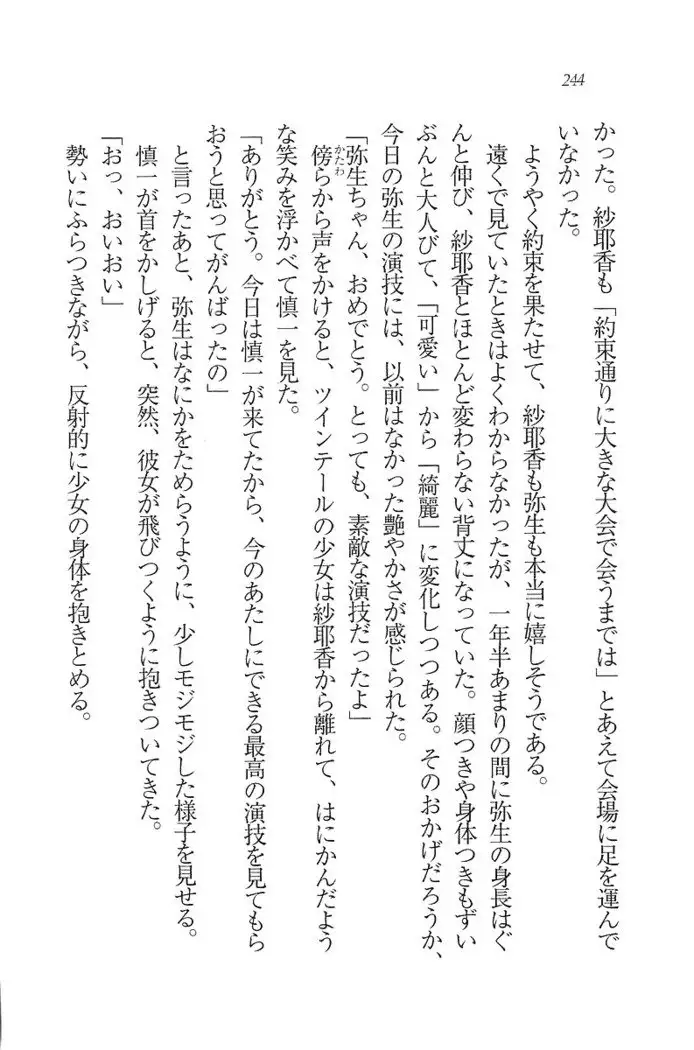 244
かった。紗耶香も「約束通りに大きな大会で会うまでは」とあえて会場に足を運んで
いなかった。
ようやく約束を果たせて、紗耶香も弥生も本当に嬉しそうである。
遠くで見ていたときはよくわからなかったが、一年半あまりの間に弥生の身長はぐ
んと伸び、紗耶香とほとんど変わらない背丈になっていた。顔つきや身体つきもずい
ぶんと大人びて、「可愛い」から「綺麗」に変化しつつある。そのおかげだろうか、
今日の弥生の演技には、以前はなかった艶やかさが感じられた。
「弥生ちゃん、おめでとう。とっても、素敵な演技だったよ」
傍らから声をかけると、ツインテールの少女は紗耶香から離れて、はにかんだよう
な笑みを浮かべて慎一を見た。
「ありがとう。今日は慎一が来てたから、今のあたしにできる最高の演技を見てもら
おうと思ってがんばったの」
と言ったあと、弥生はなにかをためらうように、少しモジモジした様子を見せる。
慎一が首をかしげると、突然、彼女が飛びつくように抱きついてきた。
「おっ、おいおい」
勢いにふらつきながら、反射的に少女の身体を抱きとめる。